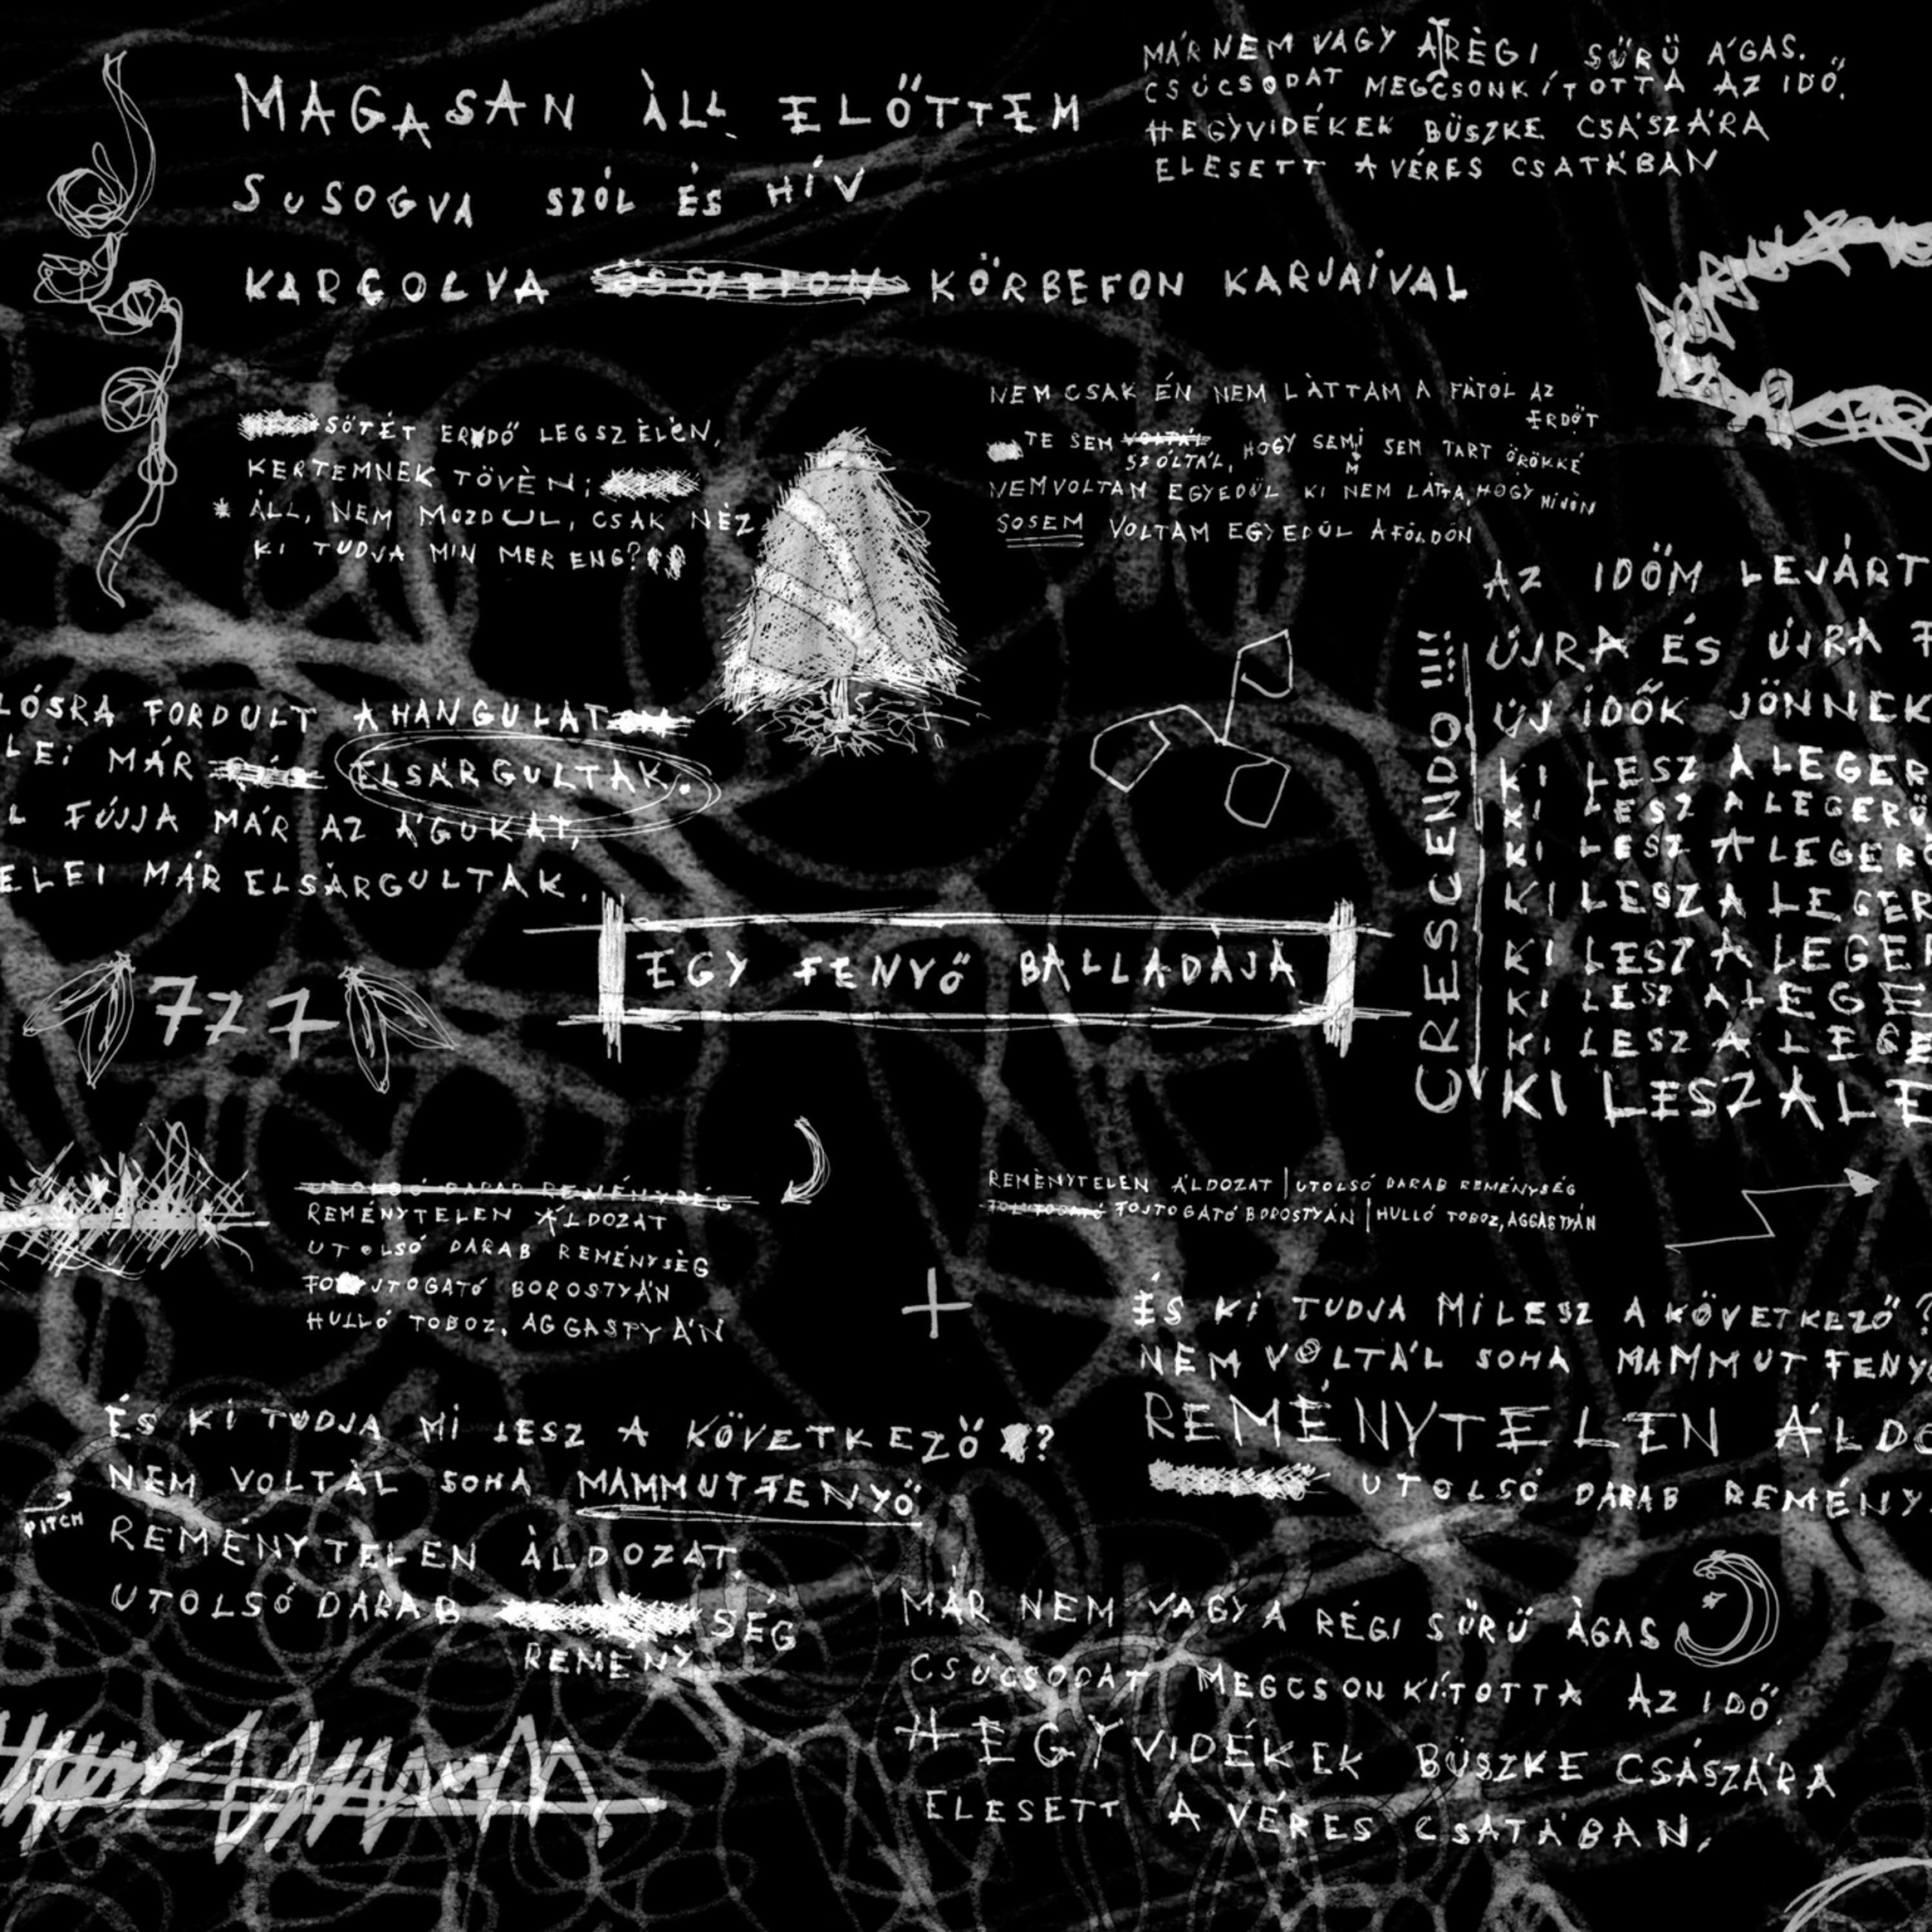 MAGASAN ÁLL ELŐTTEM
SUSOGVA SZÓL ÉS HÍV
KARCOLVA ÖSSZEFON KÖRBEFON KARJAIVAL
MÁR NEM VAGY A RÉGI SŰRŰ ÁGAS.
CSÚCSODAT MEGCSONKÍTOTTA AZ IDŐ.
HEGYVIDÉKEK BÜSZKE CSÁSZÁRA
ELESETT A VÉRES CSATÁBAN
SÖTÉT ERDŐ LEGSZÉLÉN,
KERTEMNEK TÖVÉN;
* ÁLL, NEM MOZDUL, CSAK NÉZ
KI TUDJA MIN MERENG?
NEM CSAK ÉN NEM LÁTTAM A FÁTÓL AZ
ERDŐT
TE SEM VOLTÁL
SZÓLTÁL, HOGY SEMMI SEM TART ÖRÖKKÉ
NEM VOLTAM EGYEDÜL KI NEM LÁTTA, HOGY HÍVÓN
SOSEM VOLTAM EGYEDÜL A FÖLDÖN
AZ IDŐM LEJÁRT
ÚJRA ÉS ÚJRA F
ÚJ IDŐK JÖNNEK
KI LESZ A LEGER
KI LESZ A LEGERŐ
KI LESZ A LEGERŐ
KI LESZ A LEGER
KI LESZ A LEGER
KI LESZ A LEGE
KI LESZ A LEGE
KI LESZ A LE
CRESCENDO !!!!
LÓSRA FORDULT A HANGULAT
LEI MÁR ELSÁRGULTAK.
L FÚJJA MÁR AZ ÁGUKAT,
ELEI MÁR ELSÁRGULTAK.
EGY FENYŐ BALLADÁJA
777
UTOLSÓ DARAB REMÉNYSÉG
REMÉNYTELEN ÁLDOZAT
UTOLSÓ DARAB REMÉNYSÉG
FOJTOGATÓ BOROSTYÁN
HULLÓ TOBOZ, AGGASTYÁN
REMÉNYTELEN ÁLDOZAT | UTOLSÓ DARAB REMÉNYSÉG
FOJTOGATÓ BOROSTYÁN | HULLÓ TOBOZ, AGGASTYÁN
ÉS KI TUDJA MI LESZ A KÖVETKEZŐ?
NEM VOLTÁL SOHA MAMMUTFENYŐ
REMÉNYTELEN ÁLDO
UTOLSÓ DARAB REMÉNY
ÉS KI TUDJA MI LESZ A KÖVETKEZŐ ?
NEM VOLTÁL SOHA MAMMUTFENYŐ
PITCH
REMÉNYTELEN ÁLDOZAT,
UTOLSÓ DARAB SÉG
REMÉNY
MÁR NEM VAGY A RÉGI SŰRŰ ÁGAS
CSÚCSODAT MEGCSONKÍTOTTA AZ IDŐ,
HEGYVIDÉKEK BÜSZKE CSÁSZÁRA
ELESETT A VÉRES CSATÁBAN,